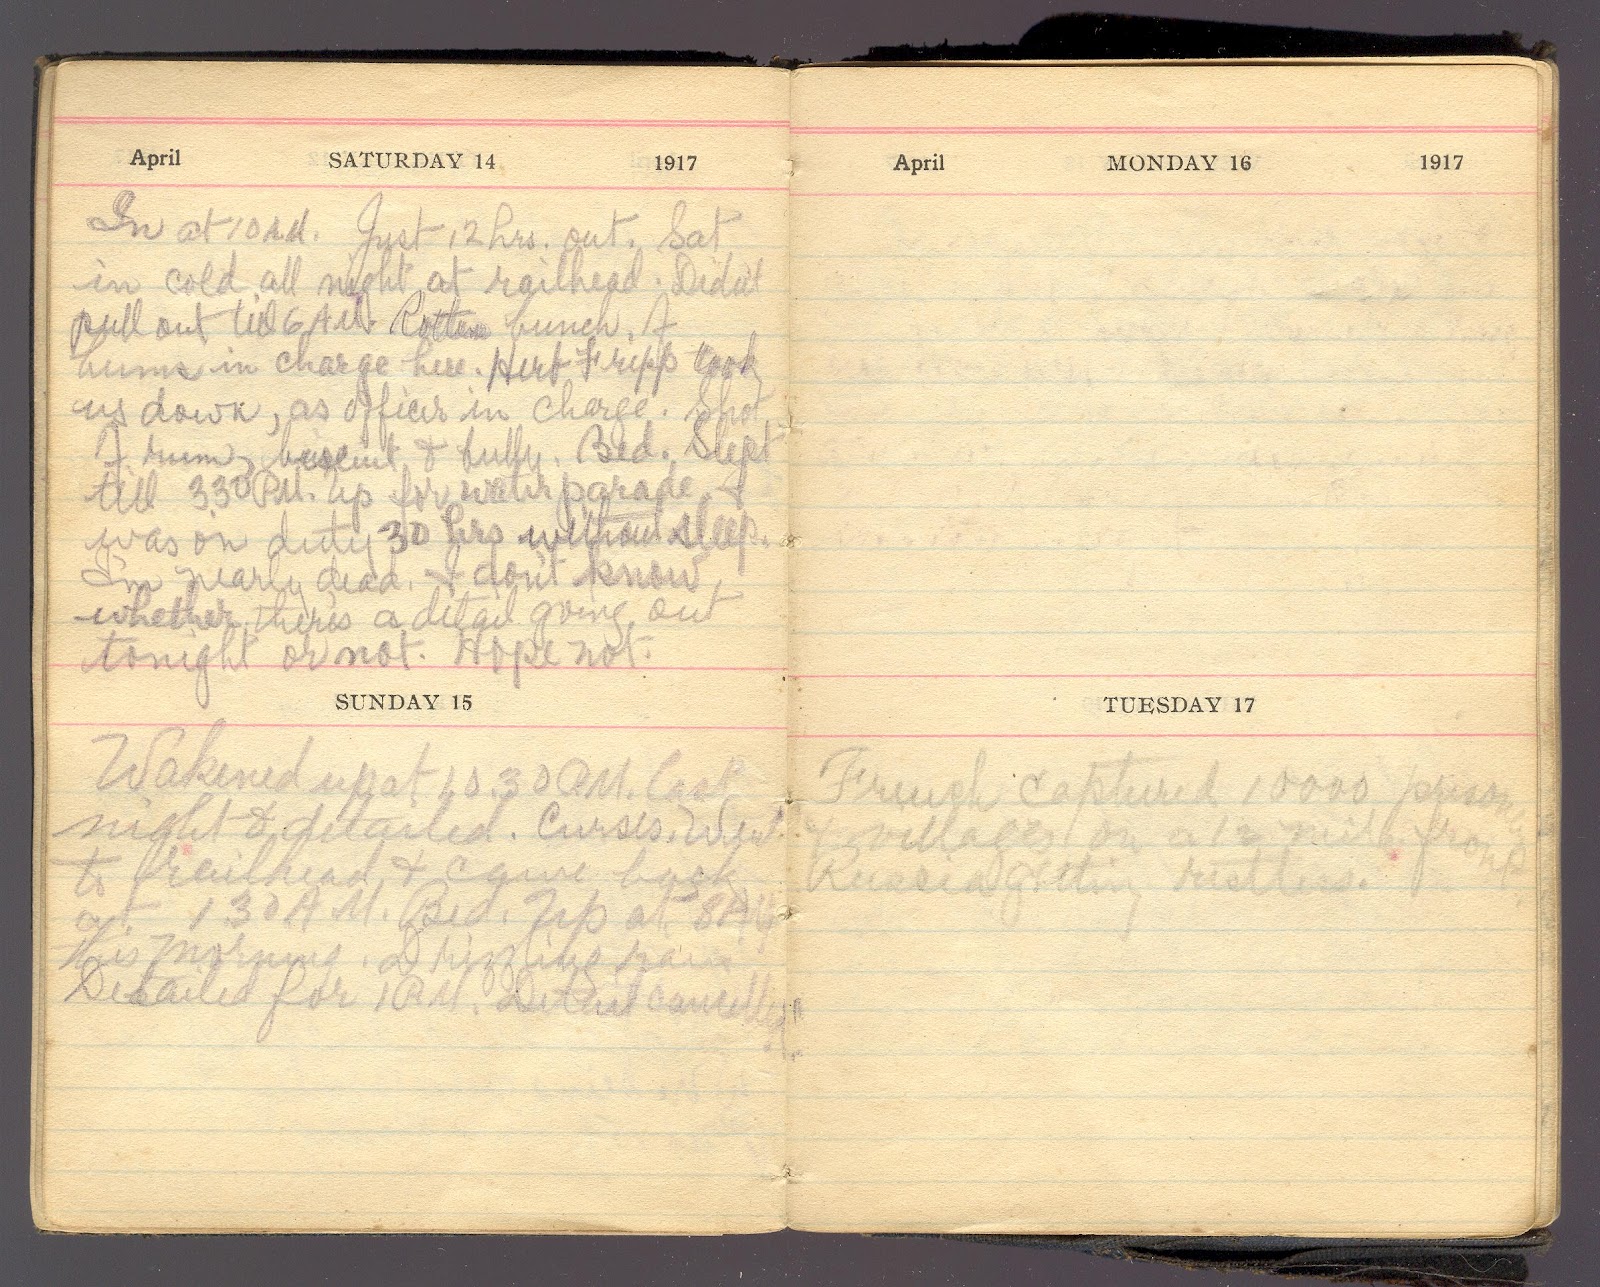 April SATURDAY 14 1917
In at 10 A.M. Just 12 hrs. out. Sat
in cold all night at railhead. Didn't
pull out till 6 A.M. Rotten bunch. of
bums in charge here. Herb Fripp took
us down, as officer in charge. Shot
of rum, biscuit & bully. Bed. Slept
till 330 P.M. Up for water parade. I
was on duty 30 hrs without sleep.
I'm nearly dead. I don't know
whether there's a detail going out
tonight or not. Hope not.
SUNDAY 15
Wakened up at 10.30 P.M. last
night & detailed. Curses. Went
to railhead & came back
at 130 A.M. Bed. Up at 8 A.M.
this morning. Drizzling rain
Detailed for 1 P.M. Detail cancelled
April MONDAY 16 1917
TUESDAY 17
French captured 10000 prisoners
& villages on a 12 mile front.
Russia getting